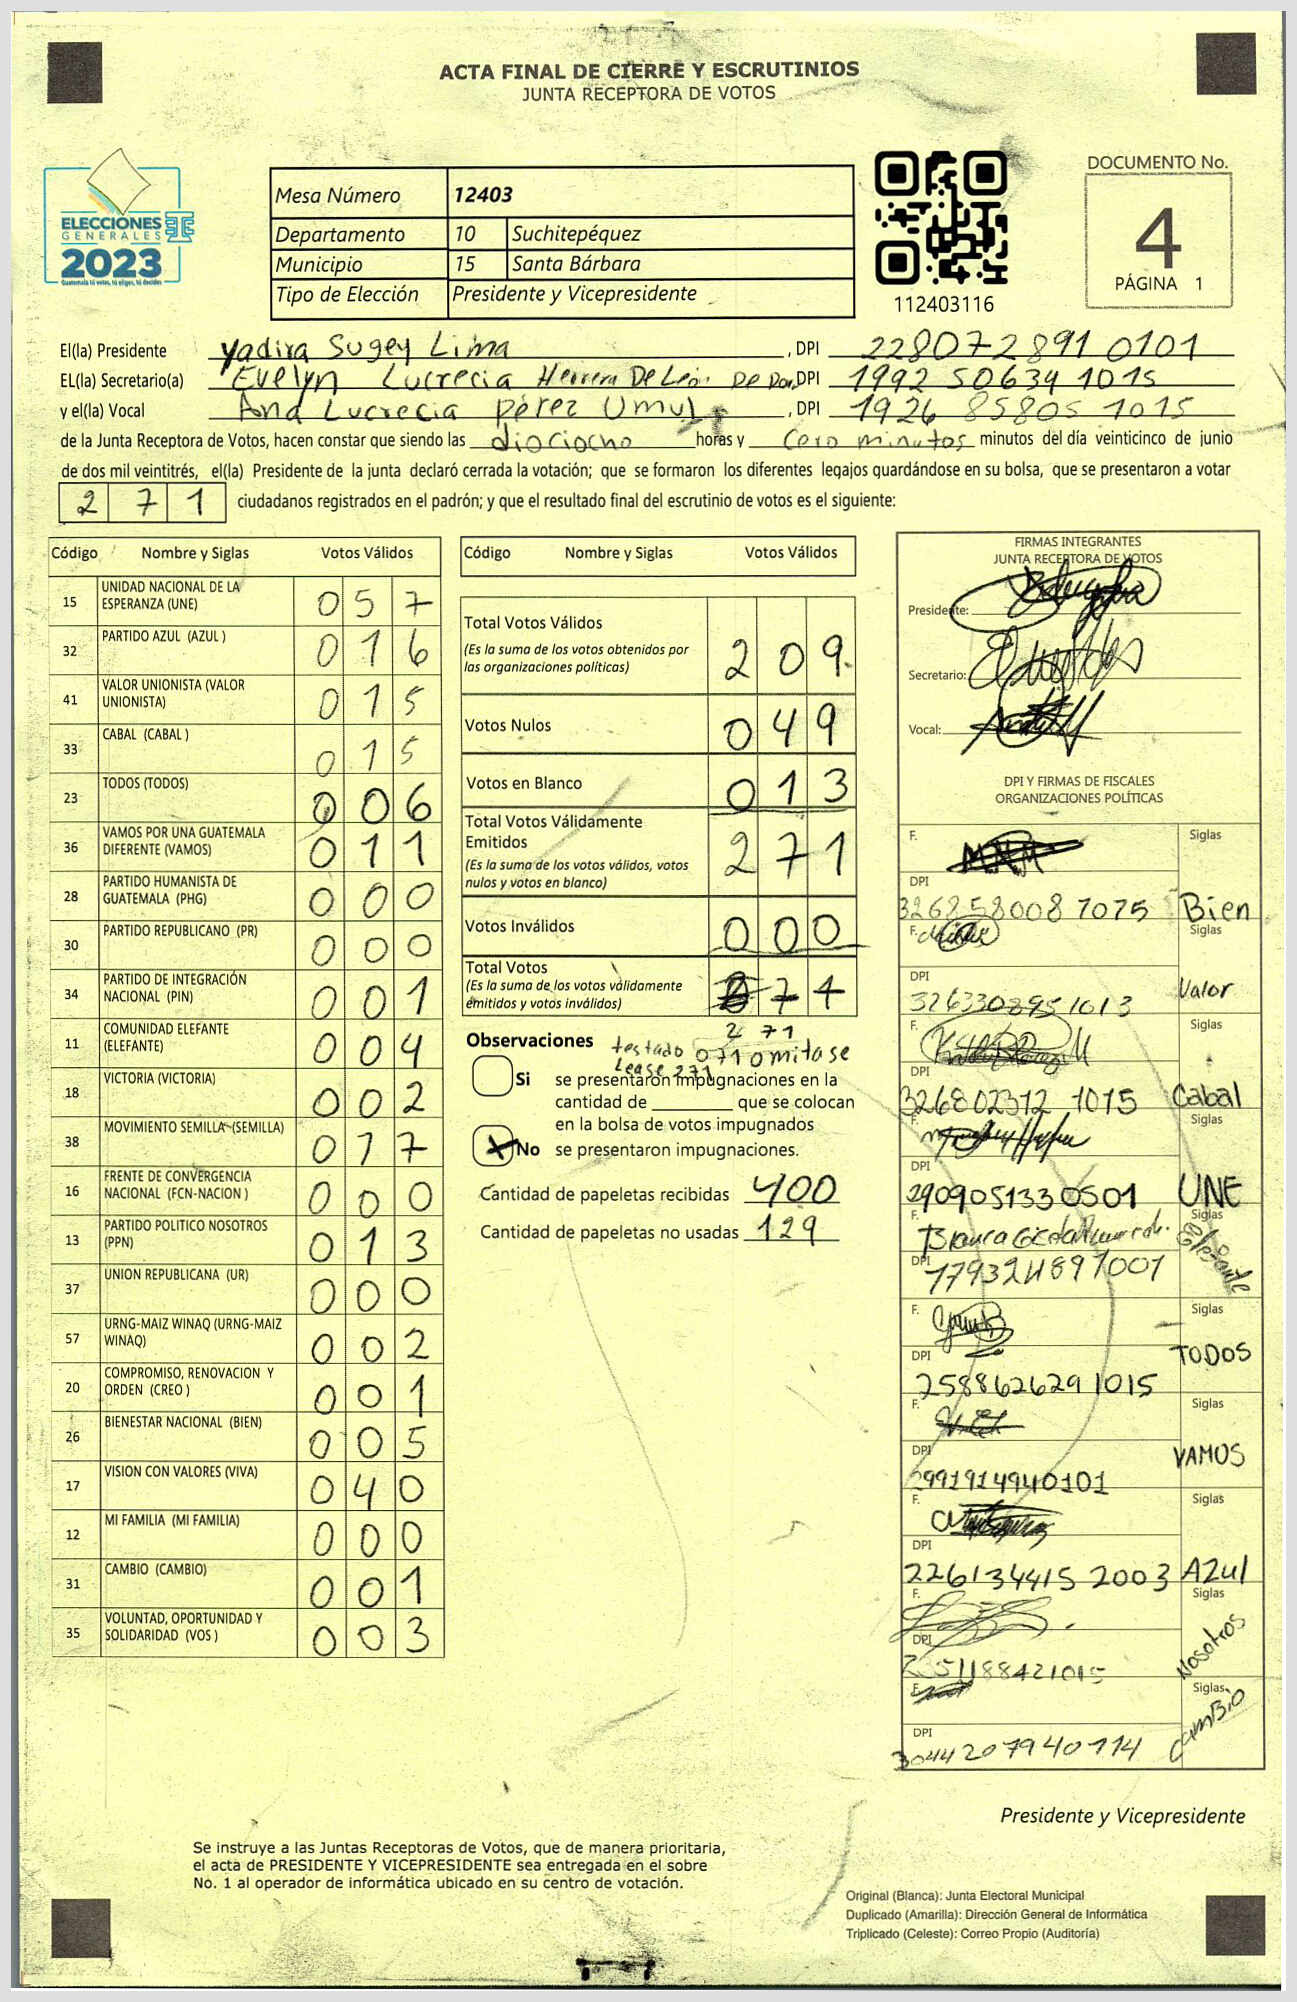 ACTA FINAL DE CIERRE Y ESCRUTINIOS
JUNTA RECEPTORA DE VOTOS
ELECCIONES
GENERALES
2023
Guatemala tú votas, tú eliges, tú decides
Mesa Número 12403
Departamento 10 Suchitepéquez
Municipio 15 Santa Bárbara
Tipo de Elección Presidente y Vicepresidente
112403116
DOCUMENTO No.
4
PÁGINA 1
El(la) Presidente Yadira Sugey Lima , DPI 228072891 0101
EL(la) Secretario(a) Evelyn Lucrecia Herrera De León De Dor, DPI 1992 50634 1015
y el(la) Vocal Ana Lucrecia pérez Umul , DPI 1926 85805 1015
de la Junta Receptora de Votos, hacen constar que siendo las diociocho horas y cero minutos minutos del día veinticinco de junio
de dos mil veintitrés, el(la) Presidente de la junta declaró cerrada la votación; que se formaron los diferentes legajos quardándose en su bolsa, que se presentaron a votar
2 7 1 ciudadanos registrados en el padrón; y que el resultado final del escrutinio de votos es el siguiente:
Código Nombre y Siglas Votos Válidos
15 UNIDAD NACIONAL DE LA ESPERANZA (UNE) 0 5 7
32 PARTIDO AZUL (AZUL ) 0 1 6
41 VALOR UNIONISTA (VALOR UNIONISTA) 0 1 5
33 CABAL (CABAL ) 0 1 5
23 TODOS (TODOS) 0 0 6
36 VAMOS POR UNA GUATEMALA DIFERENTE (VAMOS) 0 1 1
28 PARTIDO HUMANISTA DE GUATEMALA (PHG) 0 0 0
30 PARTIDO REPUBLICANO (PR) 0 0 0
34 PARTIDO DE INTEGRACIÓN NACIONAL (PIN) 0 0 1
11 COMUNIDAD ELEFANTE (ELEFANTE) 0 0 4
18 VICTORIA (VICTORIA) 0 0 2
38 MOVIMIENTO SEMILLA (SEMILLA) 0 1 7
16 FRENTE DE CONVERGENCIA NACIONAL (FCN-NACION ) 0 0 0
13 PARTIDO POLITICO NOSOTROS (PPN) 0 1 3
37 UNION REPUBLICANA (UR) 0 0 0
57 URNG-MAIZ WINAQ (URNG-MAIZ WINAQ) 0 0 2
20 COMPROMISO, RENOVACION Y ORDEN (CREO ) 0 0 1
26 BIENESTAR NACIONAL (BIEN) 0 0 5
17 VISION CON VALORES (VIVA) 0 4 0
12 MI FAMILIA (MI FAMILIA) 0 0 0
31 CAMBIO (CAMBIO) 0 0 1
35 VOLUNTAD, OPORTUNIDAD Y SOLIDARIDAD (VOS ) 0 0 3
Código Nombre y Siglas Votos Válidos
Total Votos Válidos 2 0 9
(Es la suma de los votos obtenidos por
las organizaciones políticas)
Votos Nulos 0 4 9
Votos en Blanco 0 1 3
Total Votos Válidamente
Emitidos 2 7 1
(Es la suma de los votos válidos, votos
nulos y votos en blanco)
Votos Inválidos 0 0 0
Total Votos 7 1
(Es la suma de los votos válidamente
emitidos y votos inválidos)
2 71
Observaciones testado 071 omitase
Lease 271
Si se presentaron impugnaciones en la
cantidad de ________ que se colocan
en la bolsa de votos impugnados
X No se presentaron impugnaciones.
Cantidad de papeletas recibidas 400
Cantidad de papeletas no usadas 129
FIRMAS INTEGRANTES
JUNTA RECEPTORA DE VOTOS
Presidente:
Secretario:
Vocal:
DPI Y FIRMAS DE FISCALES
ORGANIZACIONES POLÍTICAS
F. Siglas
DPI
326858008 1015 Bien
F. Siglas
DPI
326330895 1013 Valor
F. Siglas
DPI
326802312 1015 Cabal
F. Siglas
DPI
2909051330501 UNE
F. Siglas
DPI Elefante
1793241891001
F. Siglas
DPI TODOS
2588626291015
F. Siglas
DPI VAMOS
2991914940101
F. Siglas
DPI
226134415 2003 Azul
F. Siglas
DPI Nosotros
F. Siglas
DPI CAMBIO
3044207940114
Presidente y Vicepresidente
Se instruye a las Juntas Receptoras de Votos, que de manera prioritaria,
el acta de PRESIDENTE Y VICEPRESIDENTE sea entregada en el sobre
No. 1 al operador de informática ubicado en su centro de votación.
Original (Blanca): Junta Electoral Municipal
Duplicado (Amarilla): Dirección General de Informática
Triplicado (Celeste): Correo Propio (Auditoría)